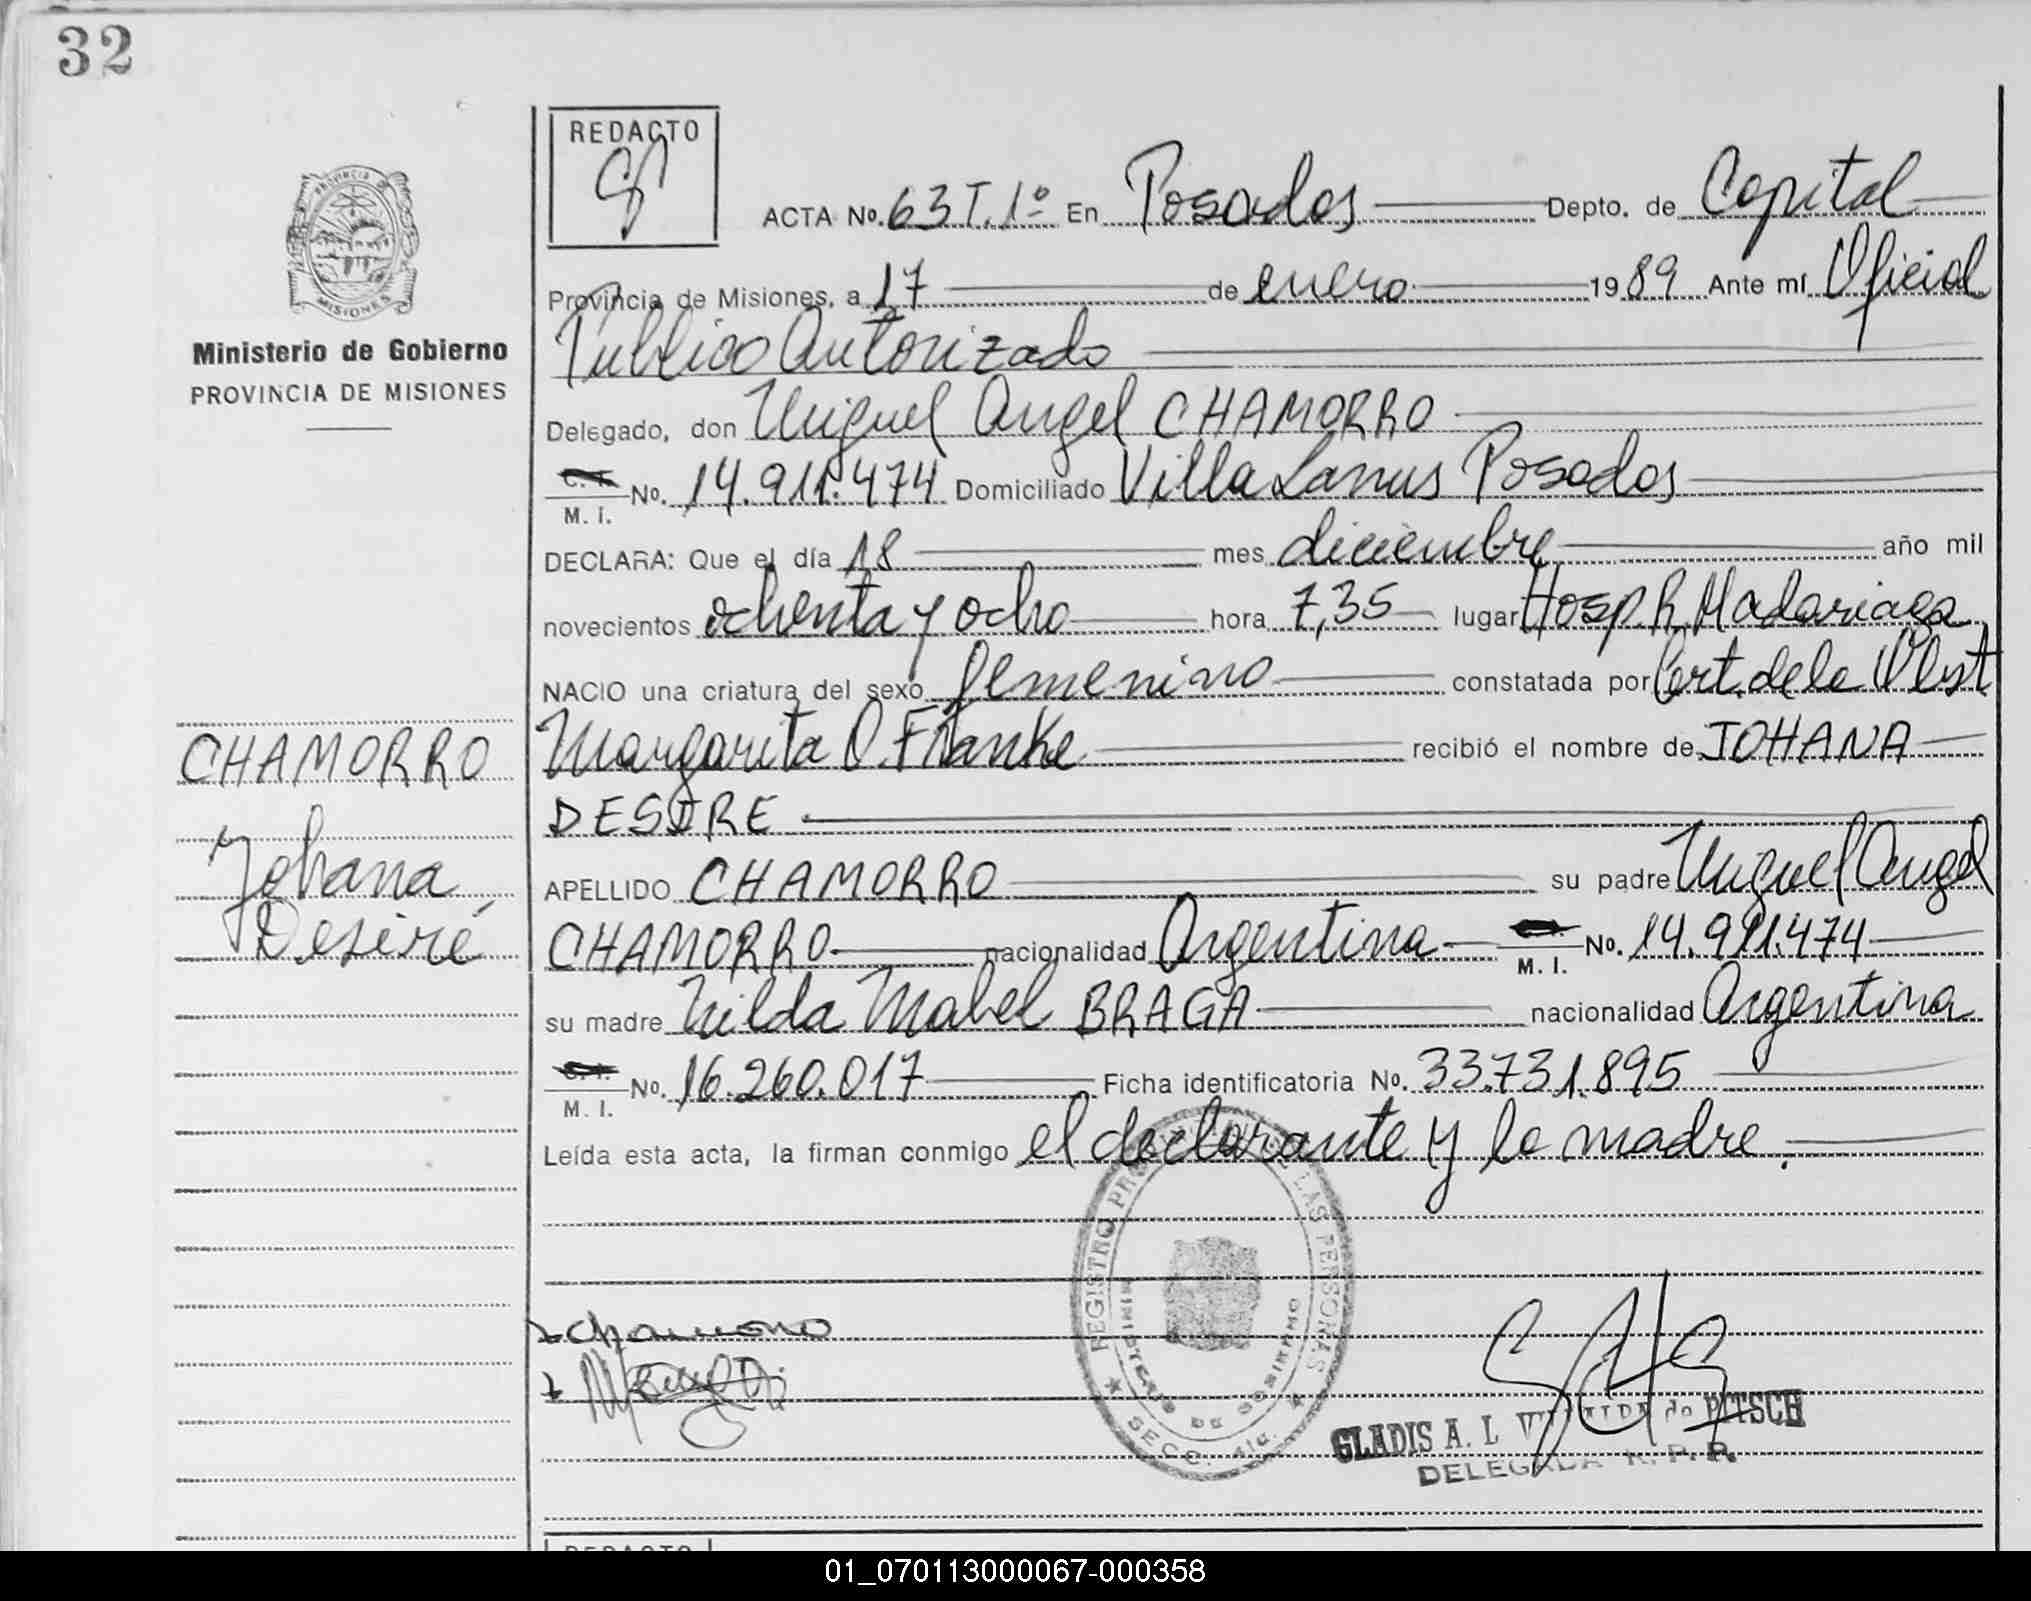 32
REDACTO
PROVINCIA DE
MISIONES
Ministerio de Gobierno
PROVINCIA DE MISIONES
ACTA No. 63 T.1º En Posadas Depto. de Capital
Provincia de Misiones, a 17 de enero 1989 Ante mí Oficial
Público Autorizado
Delegado, don Miguel Angel CHAMORRO
C. I. No. 14.911.474 Domiciliado Villa Lanus Posadas
M. I.
DECLARA: Que el día 18 mes diciembre año mil
novecientos ochenta y ocho hora 7,35 lugar Hosp. R. Madariaga
NACIO una criatura del sexo femenino constatada por Cert. de la Obst
CHAMORRO
Margarita O. Franke recibió el nombre de JOHANA
DESIRE
Johana
Desiré
APELLIDO CHAMORRO su padre Miguel Angel
CHAMORRO nacionalidad Argentina No. 14.911.474
M. I.
su madre Nilda Mabel BRAGA nacionalidad Argentina
No. 16.260.017 Ficha identificatoria No. 33.731.895
M. I.
Leída esta acta, la firman conmigo el declarante y la madre.
REGISTRO LAS PERSONAS
SECC. 4ta.
Chamorro
GLADIS A. L. de PITSCH
DELEGADA R. P. P.
REDACTO
01_070113000067-000358